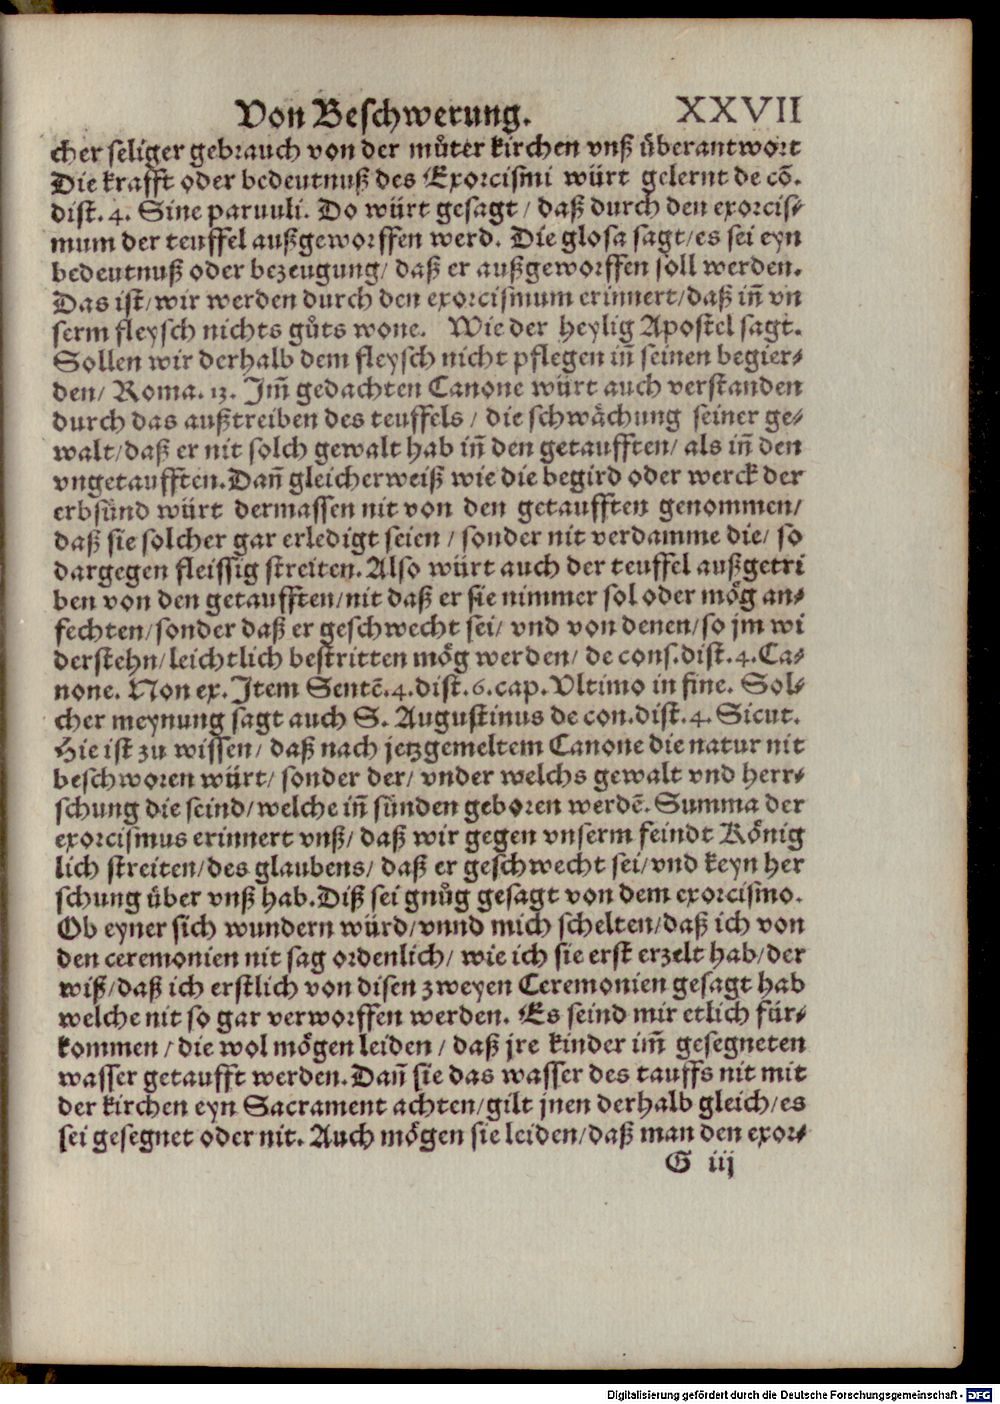 Von Beschwerung. XXVII
cher seliger gebrauch von der můter kirchen vnß überantwort
Die krafft oder bedeutnuß des Exorcismi würt gelernt de cō.
dist. 4. Sine paruuli. Do würt gesagt / daß durch den exorcis⸗
mum der teuffel außgeworffen werd. Die glosa sagt/es sei eyn
bedeutnuß oder bezeugung/ daß er außgeworffen soll werden.
Das ist/wir werden durch den exorcismum erinnert/daß in̄ vn
serm fleysch nichts gůts wone. Wie der heylig Apostel sagt.
Sollen wir derhalb dem fleysch nicht pflegen in̄ seinen begier⸗
den/ Roma. 13. Jm̄ gedachten Canone würt auch verstanden
durch das außtreiben des teuffels / die schwächung seiner ge⸗
walt/daß er nit solch gewalt hab in̄ den getaufften/ als in̄ den
vngetaufften. Dan̄ gleicherweiß wie die begird oder werck der
erbsünd würt dermassen nit von den getaufften genommen/
daß sie solcher gar erledigt seien / sonder nit verdamme die/ so
dargegen fleissig streiten. Also würt auch der teuffel außgetri
ben von den getaufften/nit daß er sie nimmer sol oder mög an⸗
fechten/sonder daß er geschwecht sei/ vnd von denen/so jm wi
derstehn/leichtlich bestritten mög werden/ de cons.dist. 4. Ca⸗
none. Non ex. Jtem Sentē.4.dist.6.cap.Vltimo in fine. Sol⸗
cher meynung sagt auch S. Augustinus de con.dist. 4. Sicut.
Hie ist zu wissen/ daß nach jetzgemeltem Canone die natur nit
beschworen würt/ sonder der/ vnder welchs gewalt vnd herr⸗
schung die seind/welche in̄ sünden geboren werdē. Summa der
exorcismus erinnert vnß/ daß wir gegen vnserm feindt König
lich streiten/des glaubens/ daß er geschwecht sei/vnd keyn her
schung über vnß hab. Diß sei gnůg gesagt von dem exorcismo.
Ob eyner sich wundern würd/vnnd mich schelten/daß ich von
den ceremonien nit sag ordenlich/ wie ich sie erst erzelt hab/der
wiß/daß ich erstlich von disen zweyen Ceremonien gesagt hab
welche nit so gar verworffen werden. Es seind mir etlich für⸗
kommen / die wol mögen leiden / daß jre kinder im̄ gesegneten
wasser getaufft werden. Dan̄ sie das wasser des tauffs nit mit
der kirchen eyn Sacrament achten/gilt jnen derhalb gleich/es
sei gesegnet oder nit. Auch mögen sie leiden/daß man den exor⸗
G iij
Digitalisierung gefördert durch die Deutsche Forschungsgemeinschaft - DFG